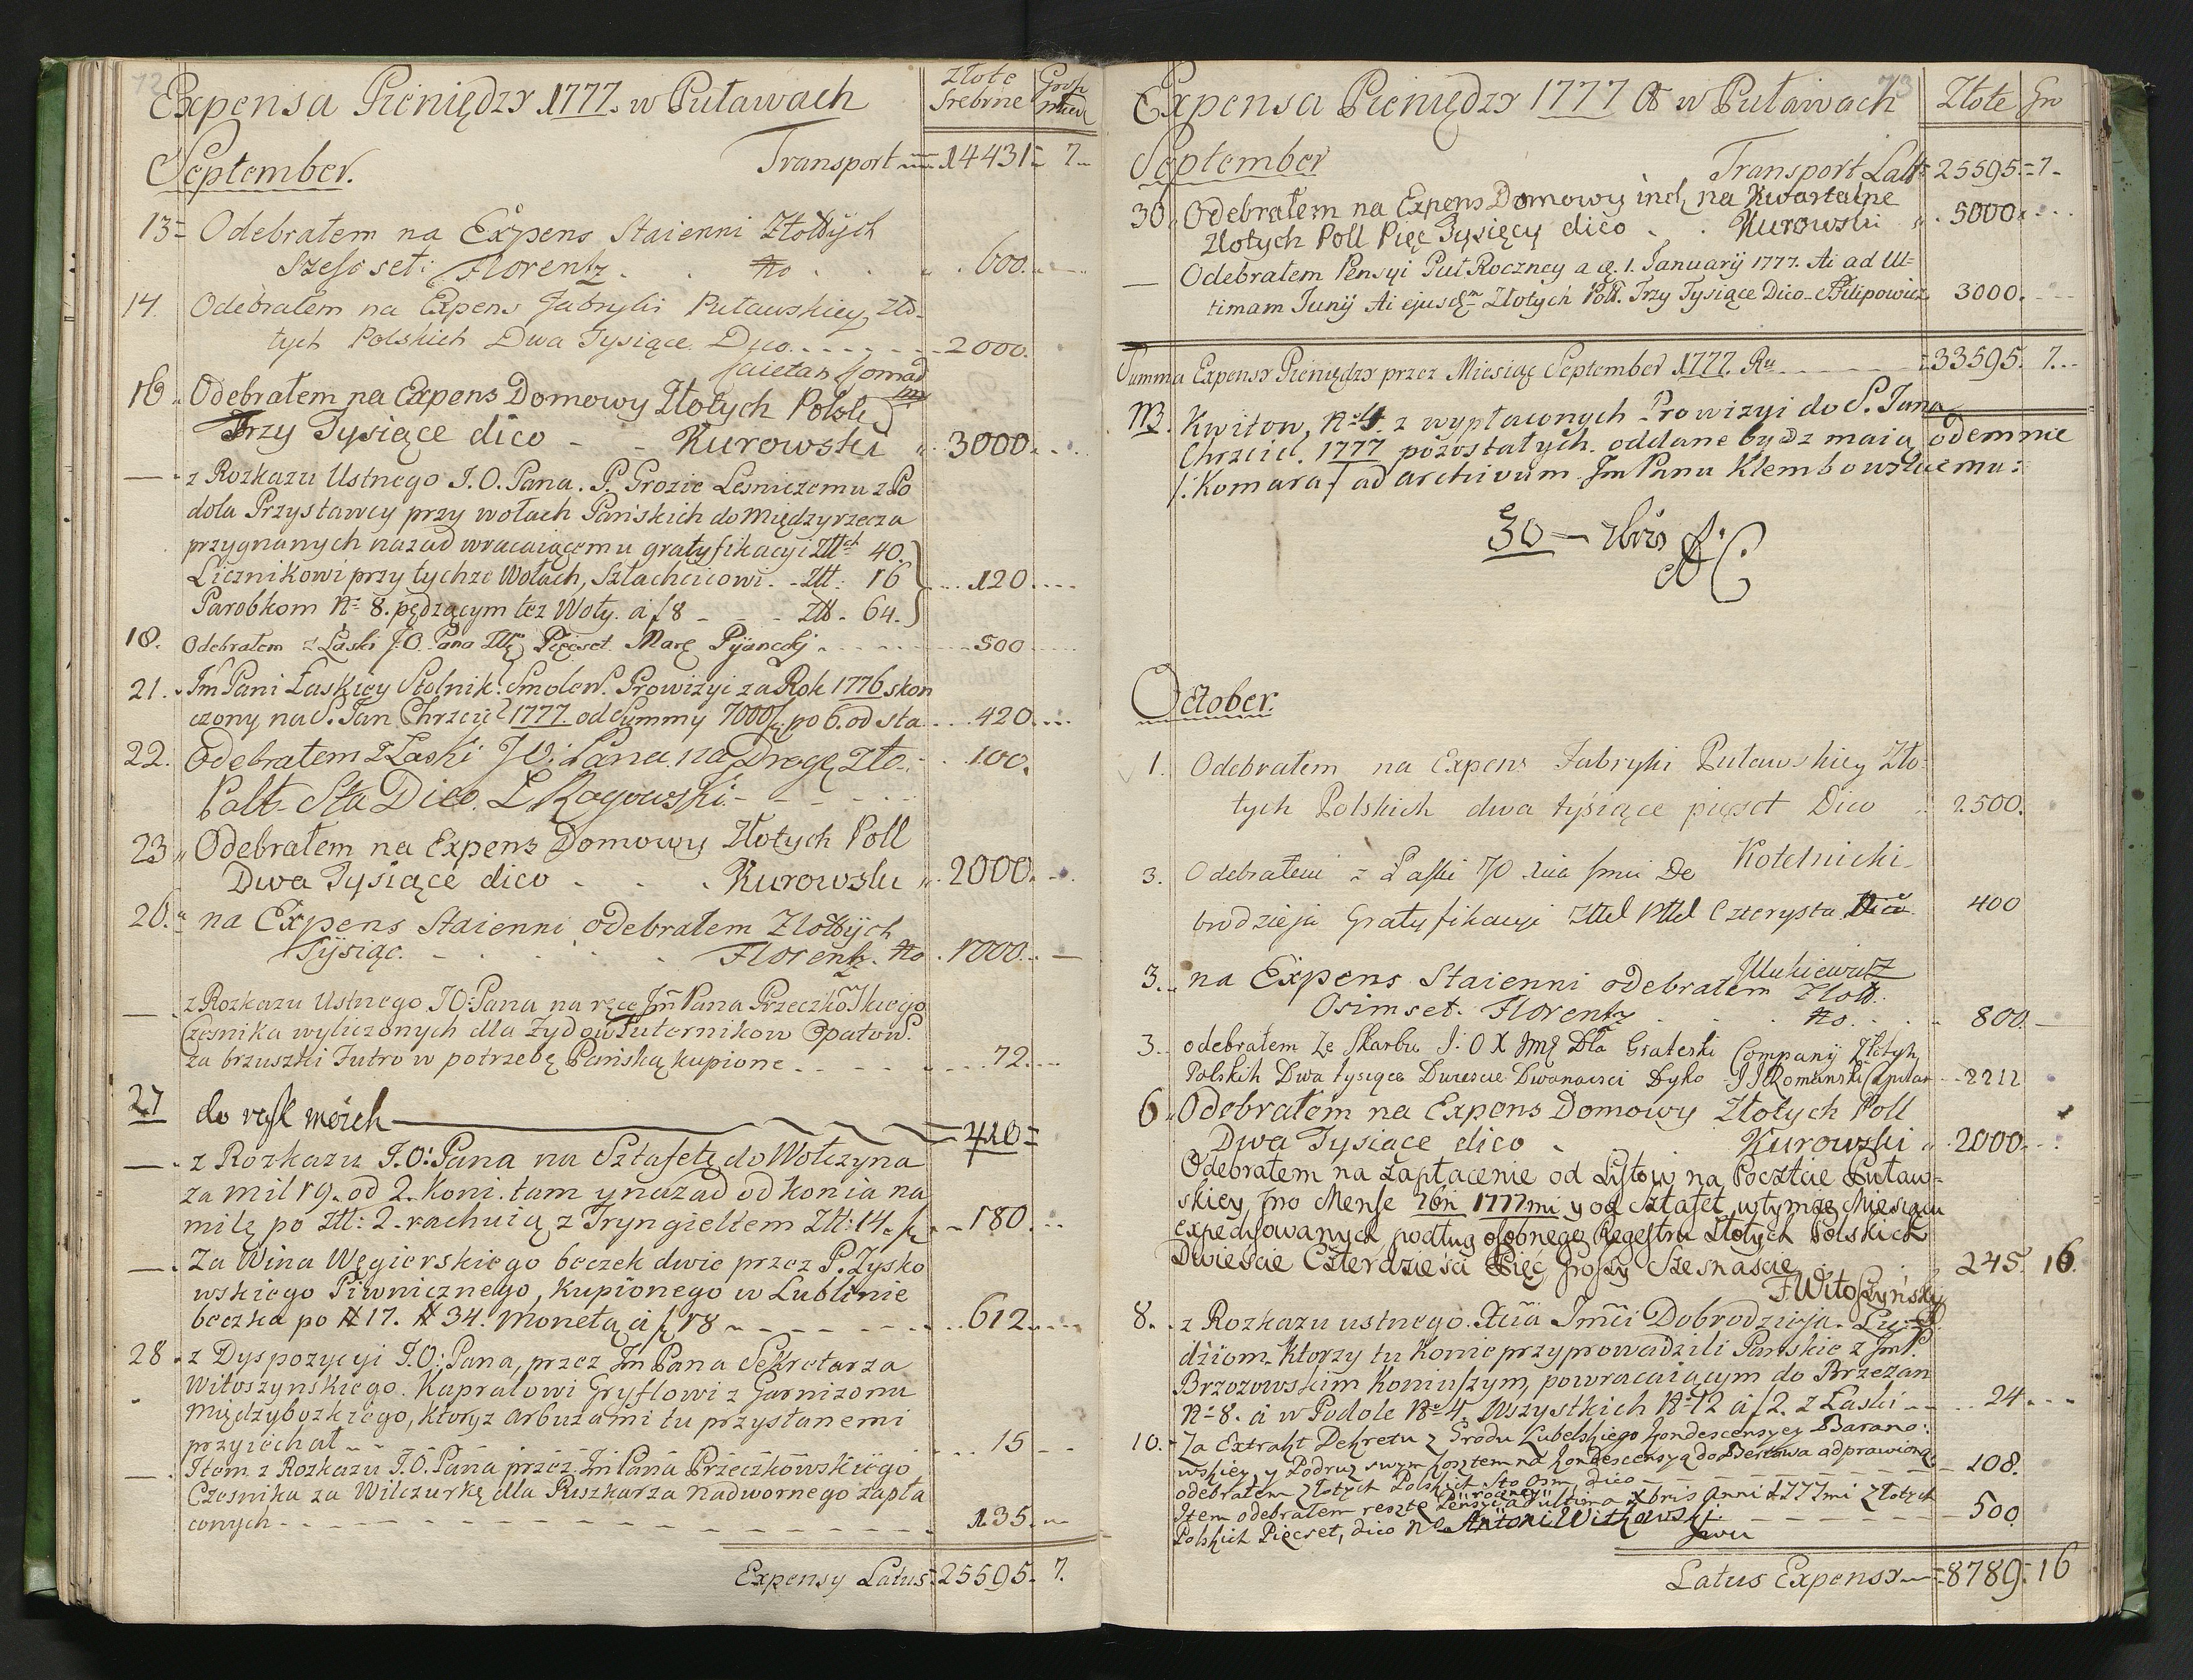 72
Expensa Pieniędzy 1777. w Puławach
Złote Srebrne
Grosz miedz
September.
Transport 14431 7
13 Odebrałem na Expens Staienni Złottÿch
Szescset: Florentz. No 600.
14. Odebrałem na Expens Fabryki Puławskiey, Zło-
tych Polskich Dwa Tysiące Dico 2000.
16. Odebrałem na Expens Domowy Złotych Polsk
Trzy Tysiące dico Kurowski 3000
z Rozkazu Ustnego J.O. Pana. P. Grozie Lesniczemu z Po
dola Przystawcy przy wołach Pańskich do Międzyrzecza
przygnanych nazad wracaiącemu gratyfikacyi Złtch 40.
Licznikowi przy tychże Wołach, Szlachcicowi. Złt: 16 120
Parobkom No 8. pędzącym też Woły. á f 8 Złt. 64.
18. Odebrałem z Łaski J.O. Pana Złt. Pięcset. 500
21. Jm Pani Łaskiey Stolnik. Smoleń. Prowizyi za Rok 1776 skon
czony na S. Jan Chrzcić. 1777. od Summy 7000 f. po 6. od sta 420
22. Odebrałem z Łaski J O: Pana na Drogę Zło. 100.
Pols. Sta Dico. L Rogowski.
23 Odebrałem na Expens Domowy Złotych Poll
Dwa Tysiące dico Kurowski 2000
26. na Expens Staienni odebrałem Złottÿch
Tÿsiąc. Florentz. No 1000
z Rozkazu Ustnego JO: Pana na ręce Jm Pana Przeczkowskiego
Czesnika wyliczonych dla Zydow Futernikow Opatow.
za brzuszki Futro w potrzebę Pańską kupione 72.
27 do rąk moich 420
z Rozkazu J.O: Pana na Sztafetę do Wołczyna
za mil 19. od 2. Koni. tam y nazad od konia na
milę po Złt: 2. rachuią z Tryngieltem Złt: 14. 180
Za Wina Węgierskiego beczek dwie przez P. Zysko
wskiego Piwnicznego, kupionego w Lublinie
beczka po # 17. # 34. monetą á f 18 612
28. z Dyspozycyi J.O: Pana, przez Jm Pana Sekretarza
Witoszynskiego. Kapralowi Gryflowi z Garnizonu
Międzybozkiego, który z arbuzami tu przysłanemi
przyiechał 15
Item z Rozkazu J.O. Pana przez Jm Pana Przeczkowskiego
Czesnika za Wilczurkę dla Puszkarza Nadwornego zapła
conych 135
Expensy Latus 25595. 7.
73
Expensa Pieniędzy 1777 w Puławach
Złote Gro
September
Transport Lat 25595 7
30 Odebrałem na Expens Domowy na Kwartalne
Złotych Poll Pięć Tysięcy dico Kurowski 5000
Odebrałem Pensyi Puł Roczney a d. 1. Januarÿ 1777. Ai ad Ul-
timam Junÿ Ai ejusdm Złotych Poll. Trzy Tysiące Dico Filipowicz 3000.
Summa Expensy Pieniędzy przez Miesiąc September 1777. Ru 33595. 7
NB. Kwitow, No 4. z wypłaconych Prowizyi do S. Jana
Chrzcić. 1777 pozostałych. oddane bydz maią odemnie
Komara ad archivum Jm Panu Klembowskiemu:
30
October.
1. Odebrałem na Expens Fabryki Puławskiey Zło-
tych Polskich dwa tysiące pięset Dico 2500.
Kotelnicki
3. Odebrałem z Łaski JO De
brodzieja Gratyfikacyi Czterysta Dico 400
3. na Expens Staienni odebrałem Złott.
Osimset. Florentz No 800
3. odebrałem ze Skarbu J: O X Jmę Dla Grateski Companÿ Złotych
Polskich Dwa tysiące Dwiescie Dwanascie Dyko Romanski 2212
6. Odebrałem na Expens Domowy Złotych Poll
Dwa Tysiące dico Kurowski 2000
Odebrałem na zapłacenie od Listow na Pocztcie Puław-
skiey, pro Mense 7bri 1777mi y od Sztafet w tymże Miesiącu
expedyowanych podług osobnego Regestru Złotych Polskich
Dwiescie Czterdzieści Pięć groszy Szesnascie 245. 16.
F Witoszyński
8. z Rozkazu ustnego. Xcia Jmci Dobrodzieja. Lu-
dziom. ktorzy tu konie przyprowadzili Panskie z Jm P.
Brzozowskim koniuszym, powracaiącym do Brzezan
No 8. á w Podole No 4. Wszystkich No 12 á f 2. z Łaski 24
10. Za Extrakt Dekretu z Grodu Lubelskiego kondescensyey Barano:
wskiey, y Podruz swym kosztem na kondescensyą do Berłowa odprawioną
odebrałem Złotych Polskich Sto Osm, dico 108.
Item odebrałem resztę rocznÿ Pensyi ad ultima Xbris Anni 1777mi Złotych
Polskich Pięcset, dico No Antoni Witkowski 500
Latus Expensy 8789. 16